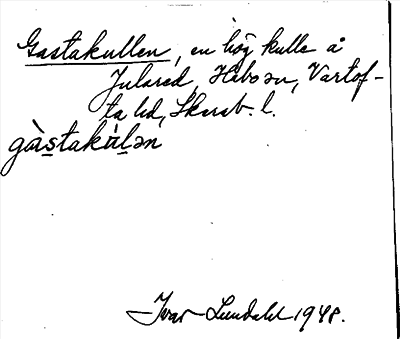 Gastakullen, en hög kulle å
Julared, Habo sn, Vartof-
ta hd, Skarab. l.
gàs̱takùḻən
Ivar Lundahl 1948.